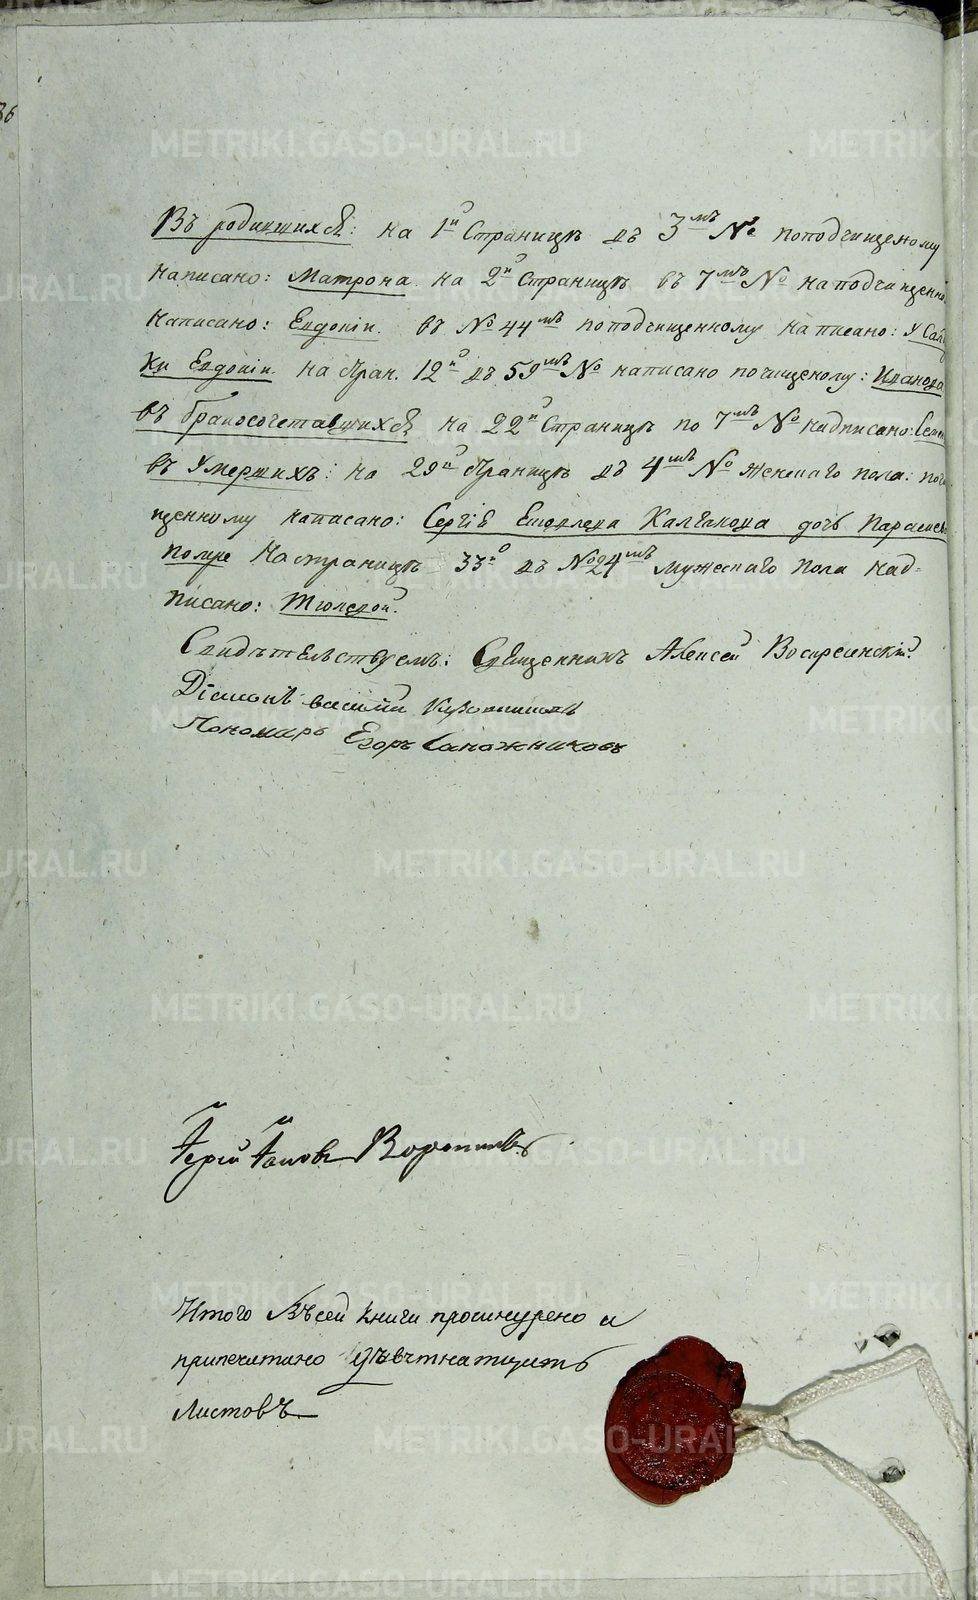 36
Въ родившихся: на 1й Страницѣ въ 3мъ № поподчищеному
написано: Матрона на 2й Страницѣ въ 7мъ № наподчищенно
написано: Евдокіи. въ № 44мъ поподчищенному написано:
ки Евдокіи. на Стран. 12й въ 59мъ № написано почищеному: Иванова
въ бракосочетавшихся на 22й Страницѣ по 7мъ № надписано:
въ Умершихъ: на 29й Страницѣ въ 4мъ № женскаго пола:
щенному написано: Сергіѣ Калганова дочь
На страницѣ 33й въ № 24мъ мужескаго пола над-
писано:
Свидѣтельствуемъ: Священникъ Алексей Воскресенскій
Діаконъ василій
Пономарь Егоръ Сапожниковъ
Іерей Іаковъ
Итого Въсей книги прошнурено и
припечатано
Листовъ
METRIKI.GASO-URAL.RU